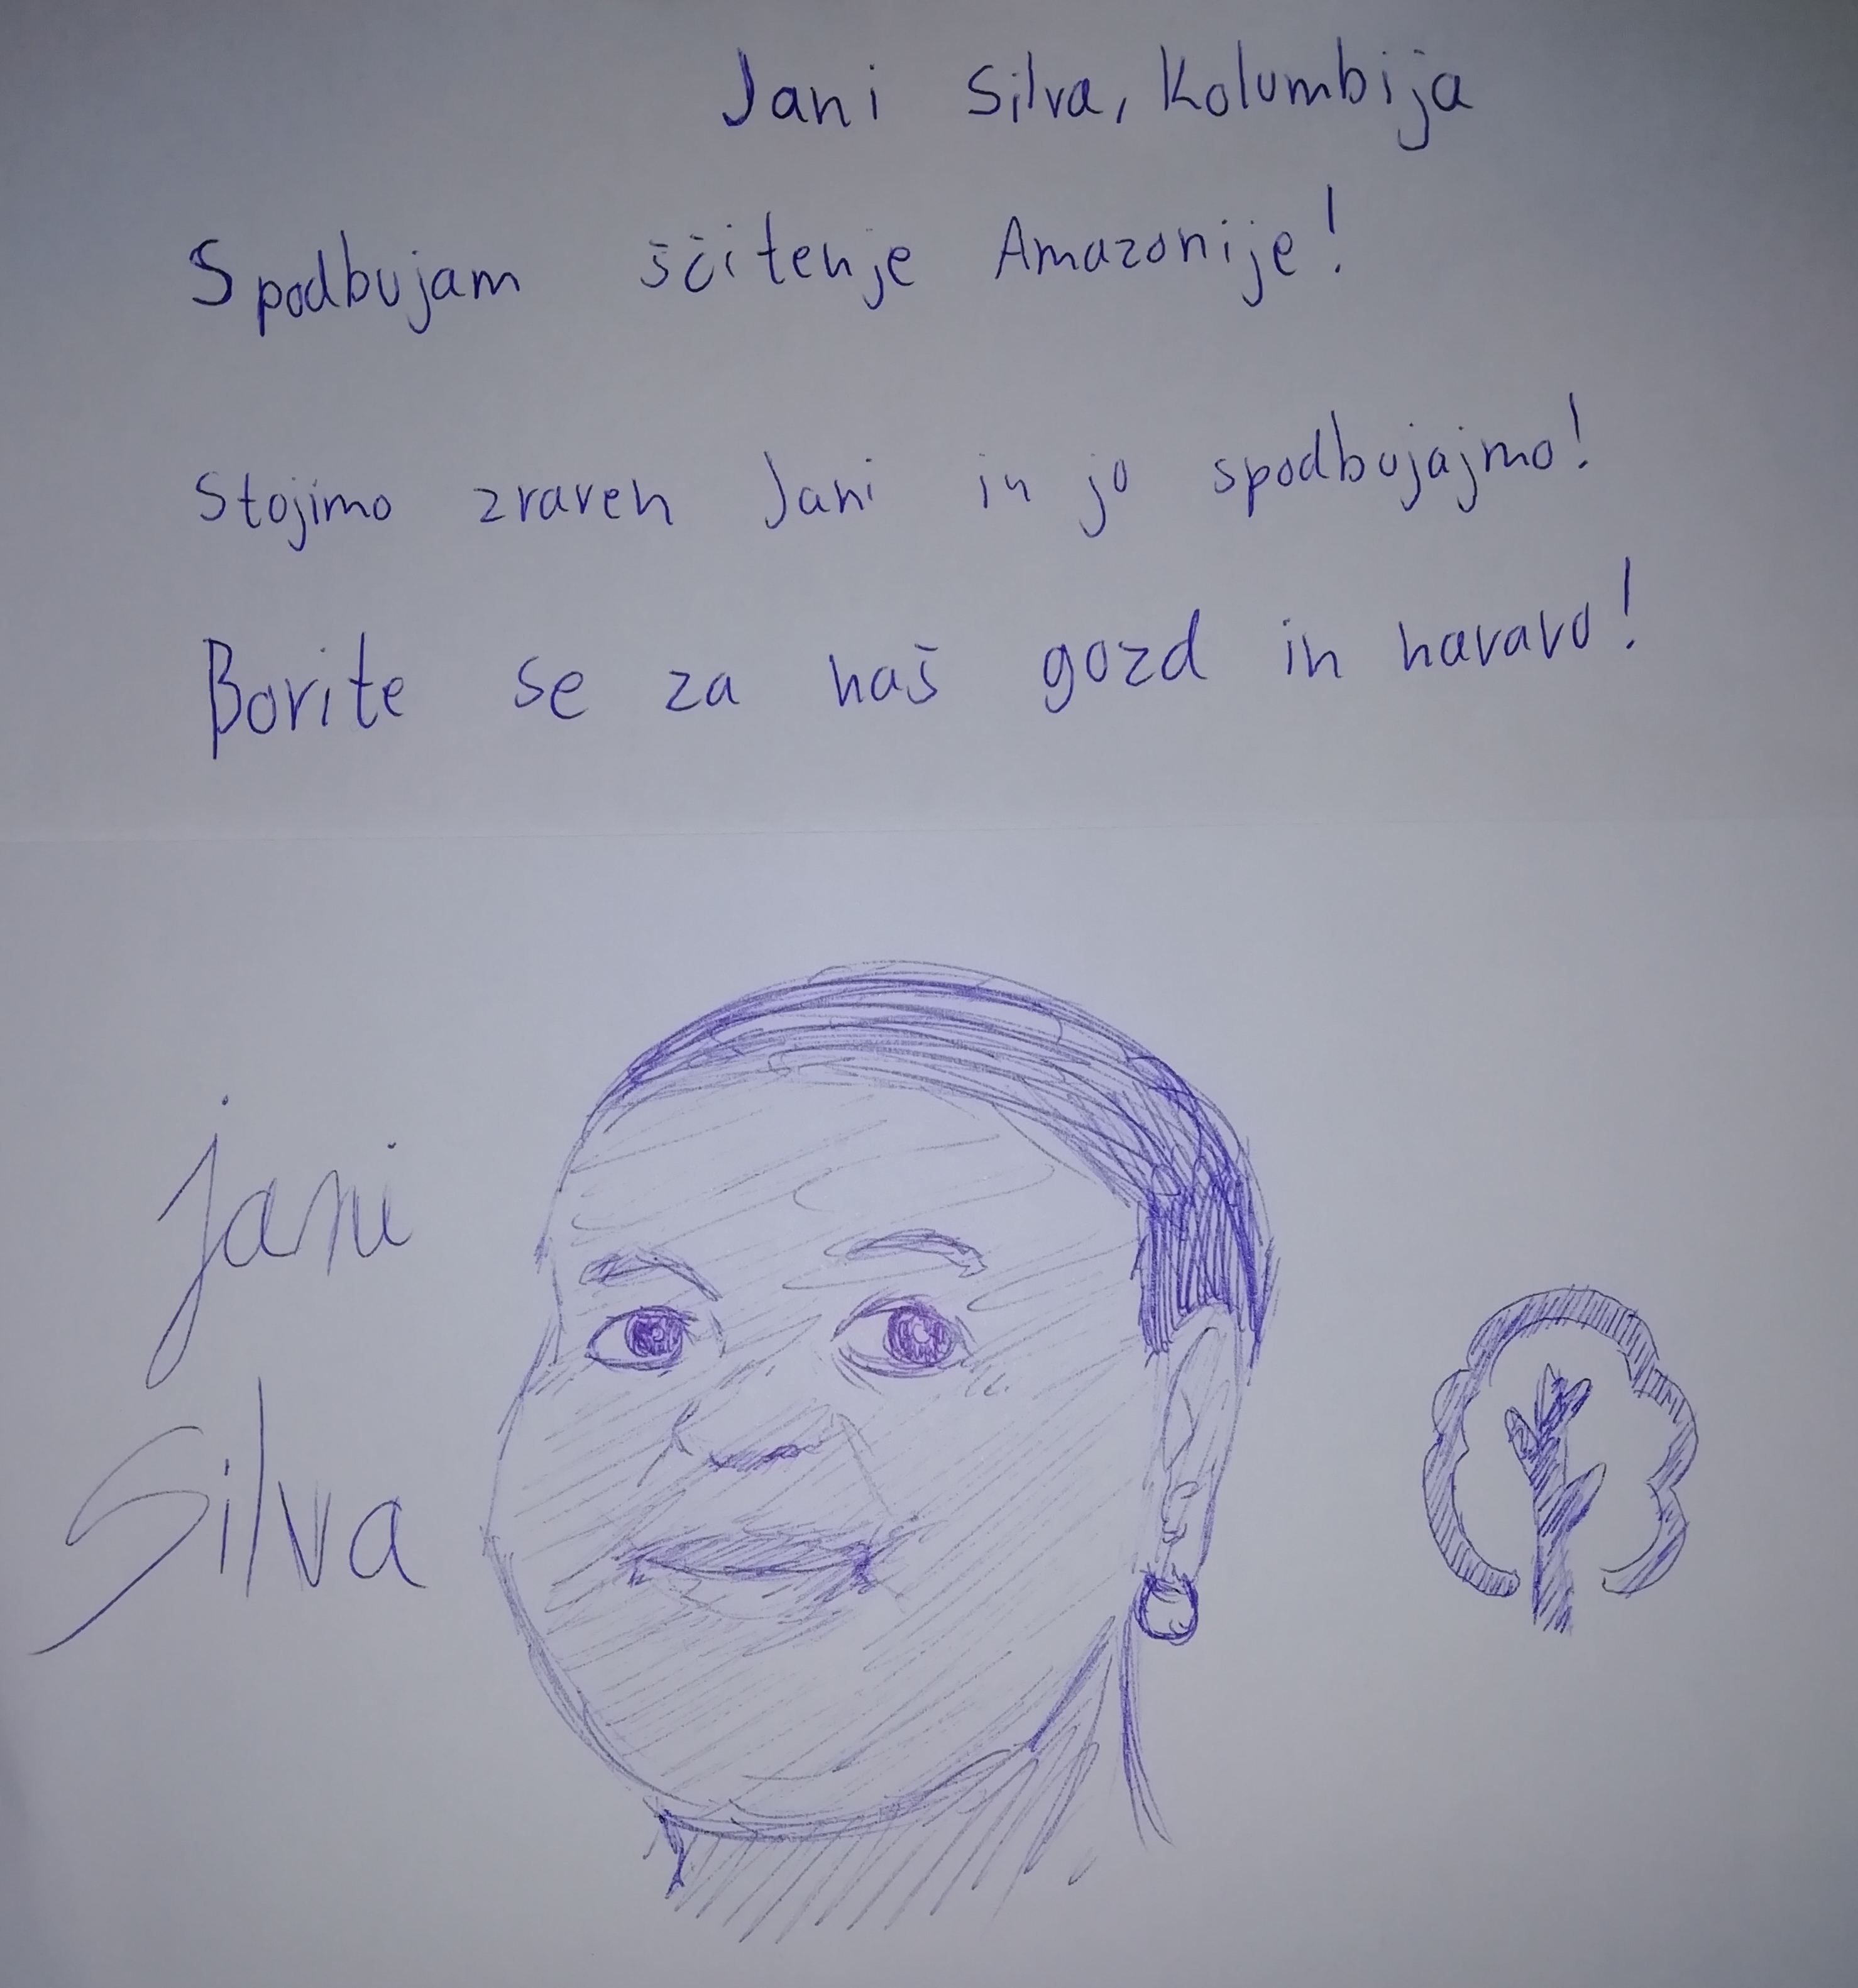 Jani Silva, Kolumbija
Spodbujam ščitenje Amazonije!
Stojimo zraven Jani in jo spodbujajmo!
Borite se za naš gozd in naravo!
jani
Silva